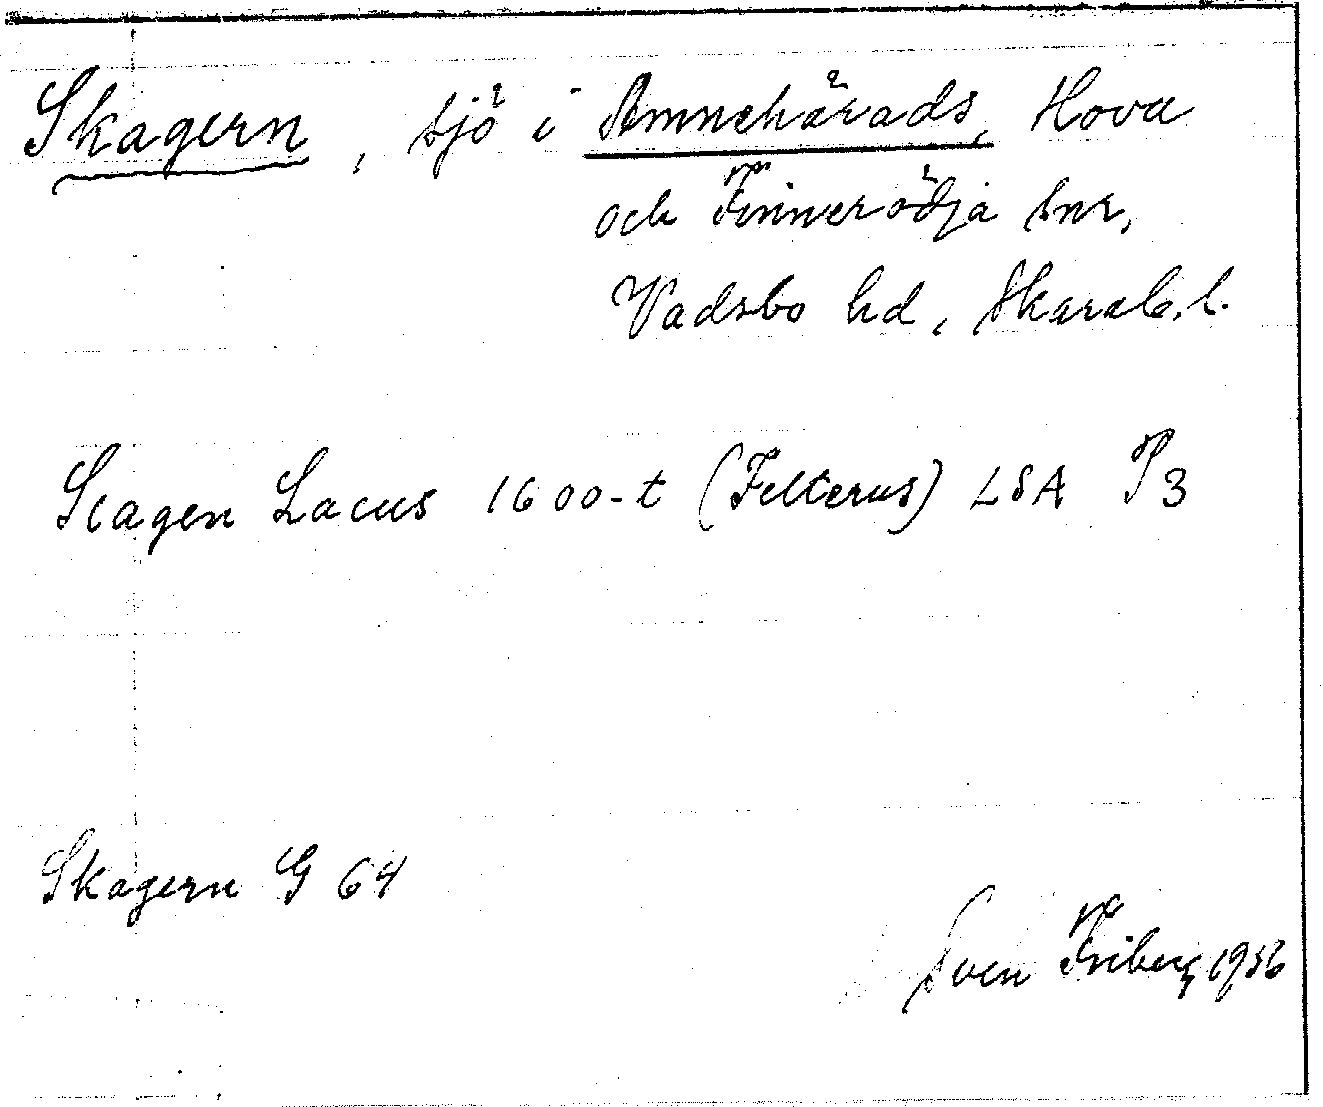 Skagern, sjö i Amnehärads, Hova
och Finnerödja snr,
Vadsbo hd, Skarab. l.
Scagen Lacus 1600-t (Felterus) LSA P3
Skagern G 64
Sven Friberg 1936